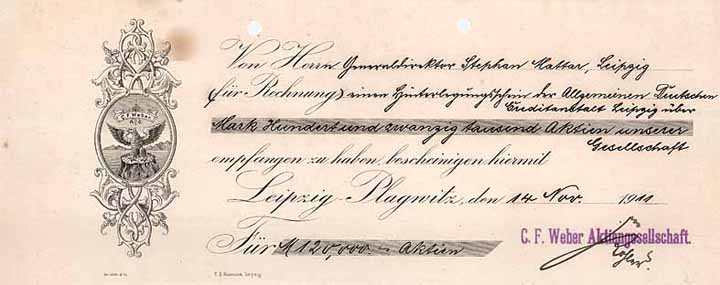 C. F. Weber
A. G.
Von Herrn Generaldirektor Stephan Mattar, Leipzig
(für Rechnung) einen Hinterlegungsschein der Allgemeinen Deutschen
Creditanstalt Leipzig über
Mark Hundert und zwanzig tausend Aktien unserer
Gesellschaft
empfangen zu haben, bescheinigen hiermit
Leipzig-Plagwitz, den 14 Nov. 1911
C. F. Weber Aktiengesellschaft.
Für M 120,000.- Aktien
Leipzig.